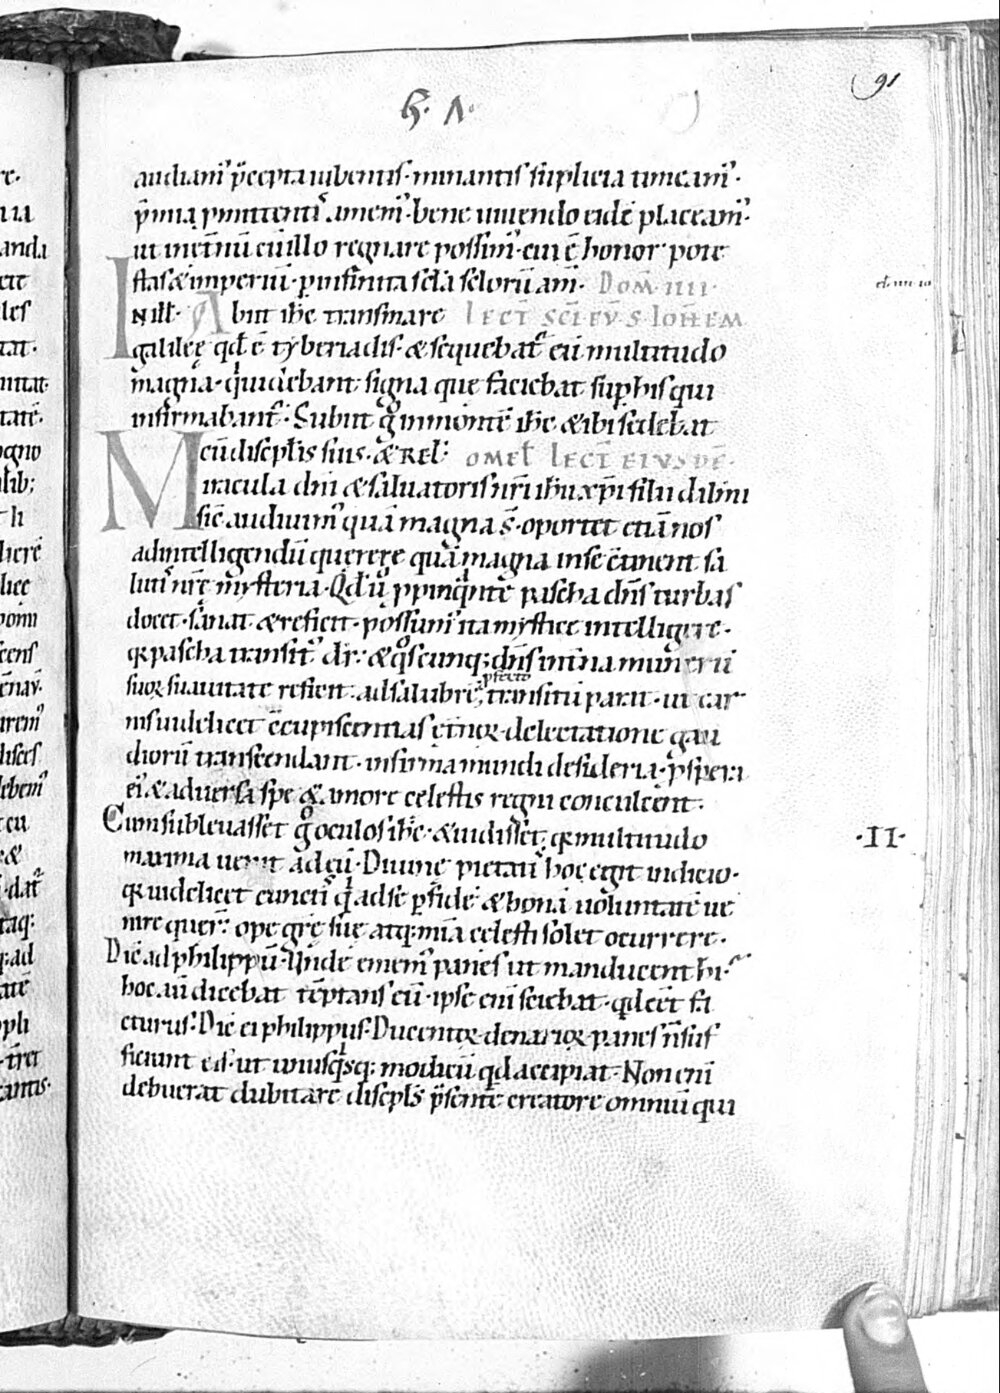 91
audiam᷒ p̄cepta iubentis· minantis suplicia timeam᷒·
p̄mia ꝓmittenti᷒ amem᷒· bene uiuendo eidē placeam᷒·
ut inet̄nū cū illo regnare possim᷒· cui ē honor· pote
stas & imperiū· p̱ infinita scl̄a scl̄orū am̄· DOM̄ IIII·
N ill̄· Abiit ih̄c transmare LECT̄ SC̄I EV̄ S IOH̄EM
galileę qd̄ ē tyberiadis· & sequebat᷒ eū multitudo
magna· q̇ uidebant signa que faciebat sup̱ his qui
infirmabant᷒· Subiit g̊ inmontē ih̄c & ibi sedebat
cū discipl̄is suis· & REL̄· OMEL̄ LECT̄ EIVSDĒ·
Miracula dn̄i & saluatoris nr̄i ih̄u xp̄i filii dilc̄mi
sic̄ audiuim᷒ quā magna s̄· oportet etiā nos
adintelligendū querere quā magna inse c̄tinent sa
luti᷒ nr̄ę mysteria· Qd̄ ū ꝓpinq̇nte pascha dn̄s turbas
docet· sanat & reficit· possum᷒ ita mystice intelligere·
q̄ pascha transit᷒ dr̄· & q̊scunq; dn̄s intima munerū
suoꝝ suauitate reficit· ad salubrē p̱fecto transitū parat· ut car
nis uidelicet c̄cupiscentias & t̄noꝝ delectatione gau
diorū transcendant· infirma mundi desideria· ꝓspera
ei᷒ & aduersa spe & amore celestis regni conculcent·
Cum subleuasset g̊ oculos ih̄c· & uidisset· q̄ multitudo ·II·
maxima uenit adeū· Diuine pietati᷒ hoc egit indicio·
q̄ uidelicet cuncti᷒ q̇ adse p̱ fidē & bonā uolūtatē ue
nire quer̄t ope grę̄ suę atq; mīa celesti solet occurrere·
Dic̄ ad philippū· Unde emem᷒ panes ut manducent hi·
hoc aū dicebat tēptans eū· ipse enī sciebat· qd̄ eēt fa
cturus· Dic̄ ei philippus· Ducentoꝝ denarioꝝ panes n̄ suf
ficiunt eis· ut unusq̇sq; modicū qd accipiat· Non enī
debuerat dubitare discipl̄s p̄sente creatore omniū qui